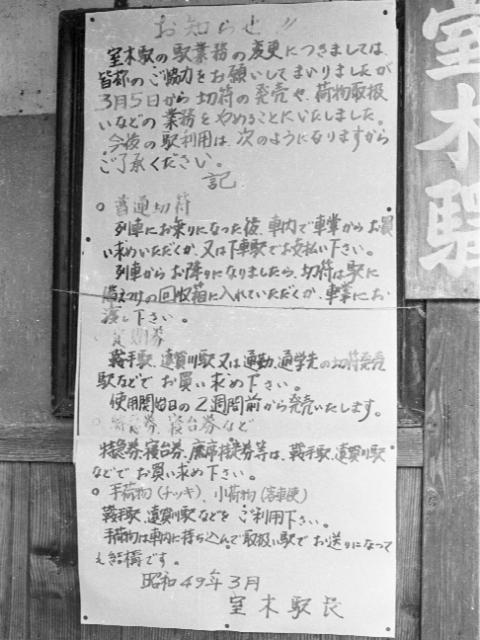 お知らせ!!
室木駅の駅業務の変更につきましては、
皆都のご協力をお願いしてまいりましたが
3月5日から切符の発売や、荷物取扱
いなどの業務をやめることにいたしました。
今後の駅利用は、次のようになりますから
ご了承ください。
記
○ 普通切符
列車にお乗りになった後、車内で車掌からお買
い求めいただくか、又は下車駅でお支払い下さい。
列車からお降りになりましたら、切符は駅に
備えつけの回収箱に入れていただくか、車掌にお
渡し下さい。
○ 定期券
鞍手駅、遠賀川駅又は通勤、通学先の切符発売
駅などでお買い求め下さい。
使用開始日の2週間前から発売いたします。
○ 特急券、寝台券など
特急券、寝台券、座席指定券等は、鞍手駅、遠賀川駅
などでお買い求め下さい。
○ 手荷物(チッキ)、小荷物(客車便)
鞍手駅、遠賀川駅などをご利用下さい。
手荷物は車内に持ち込んで取扱い駅でお送りになって
も結構です。
昭和49年3月
室木駅長
室木駅